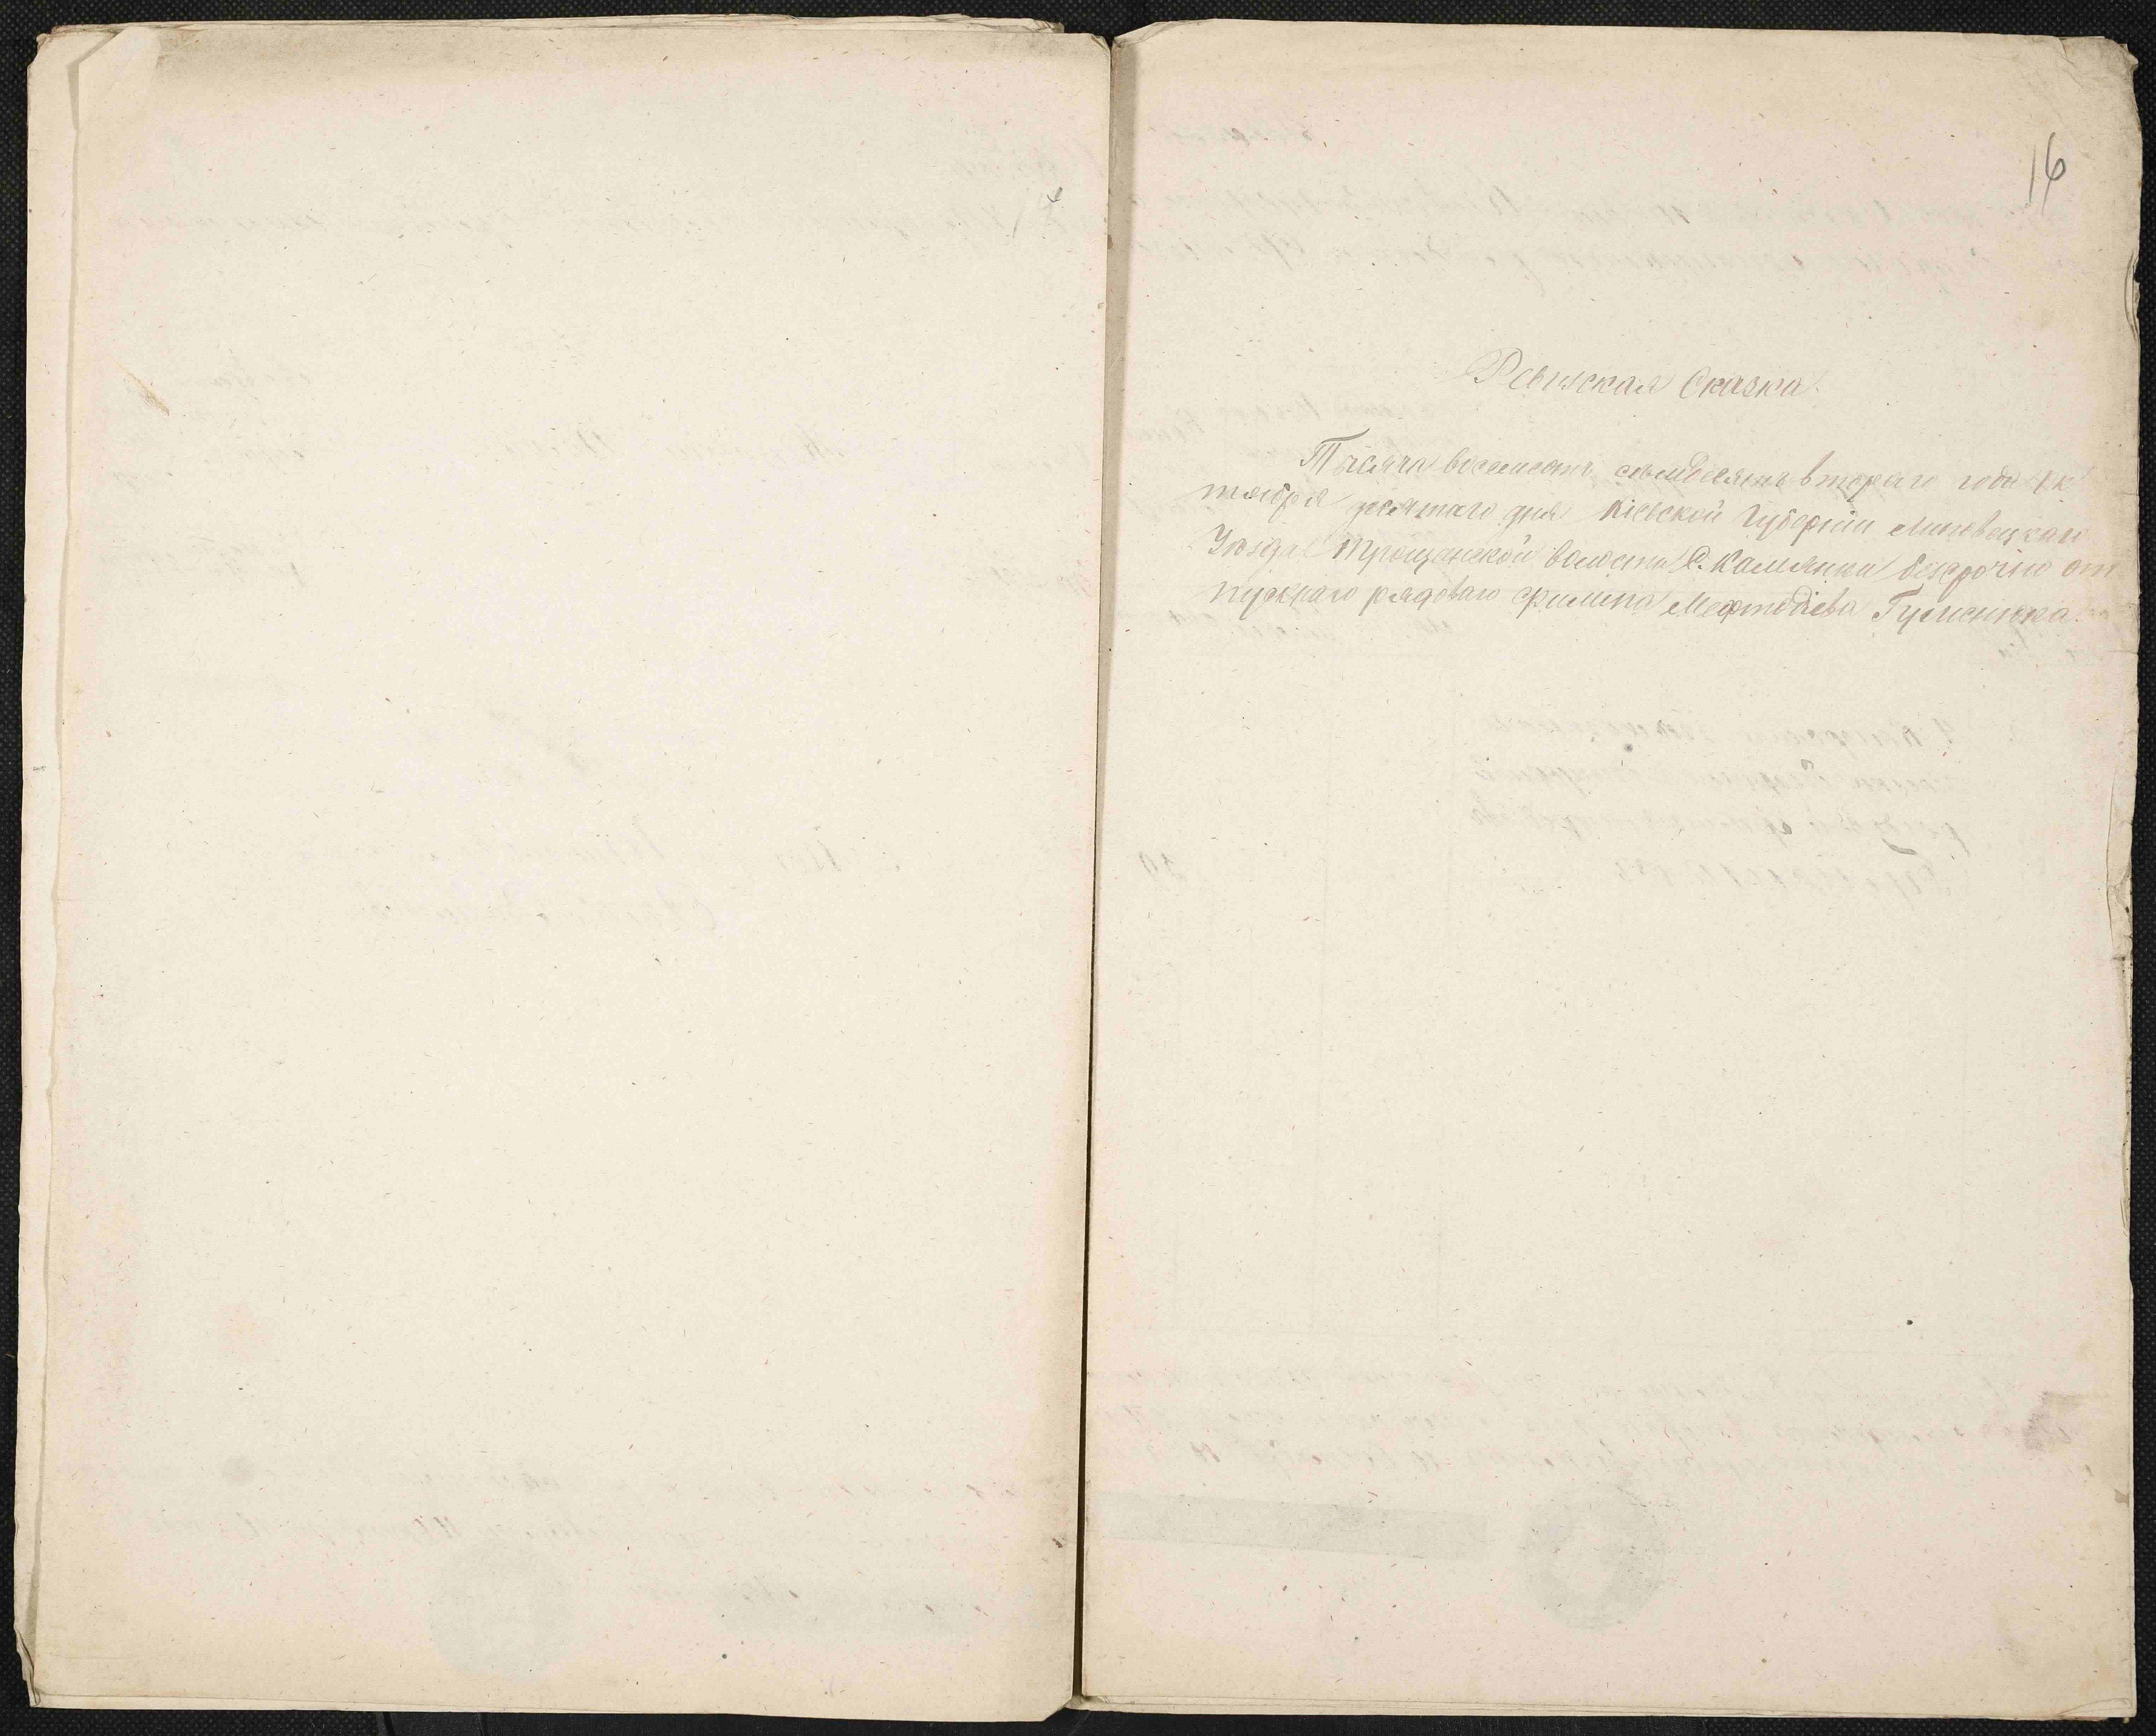 16
Ревизская Сказка.
Тысяча восемсотъ семьдесятъ втораго года Ок
тября десятаго дня Кіевской Губерніи Липовецкаго
Уѣзда Трощанской волости С. Каменки безсрочно от
пускнаго рядоваго Филипа Мефтодіева